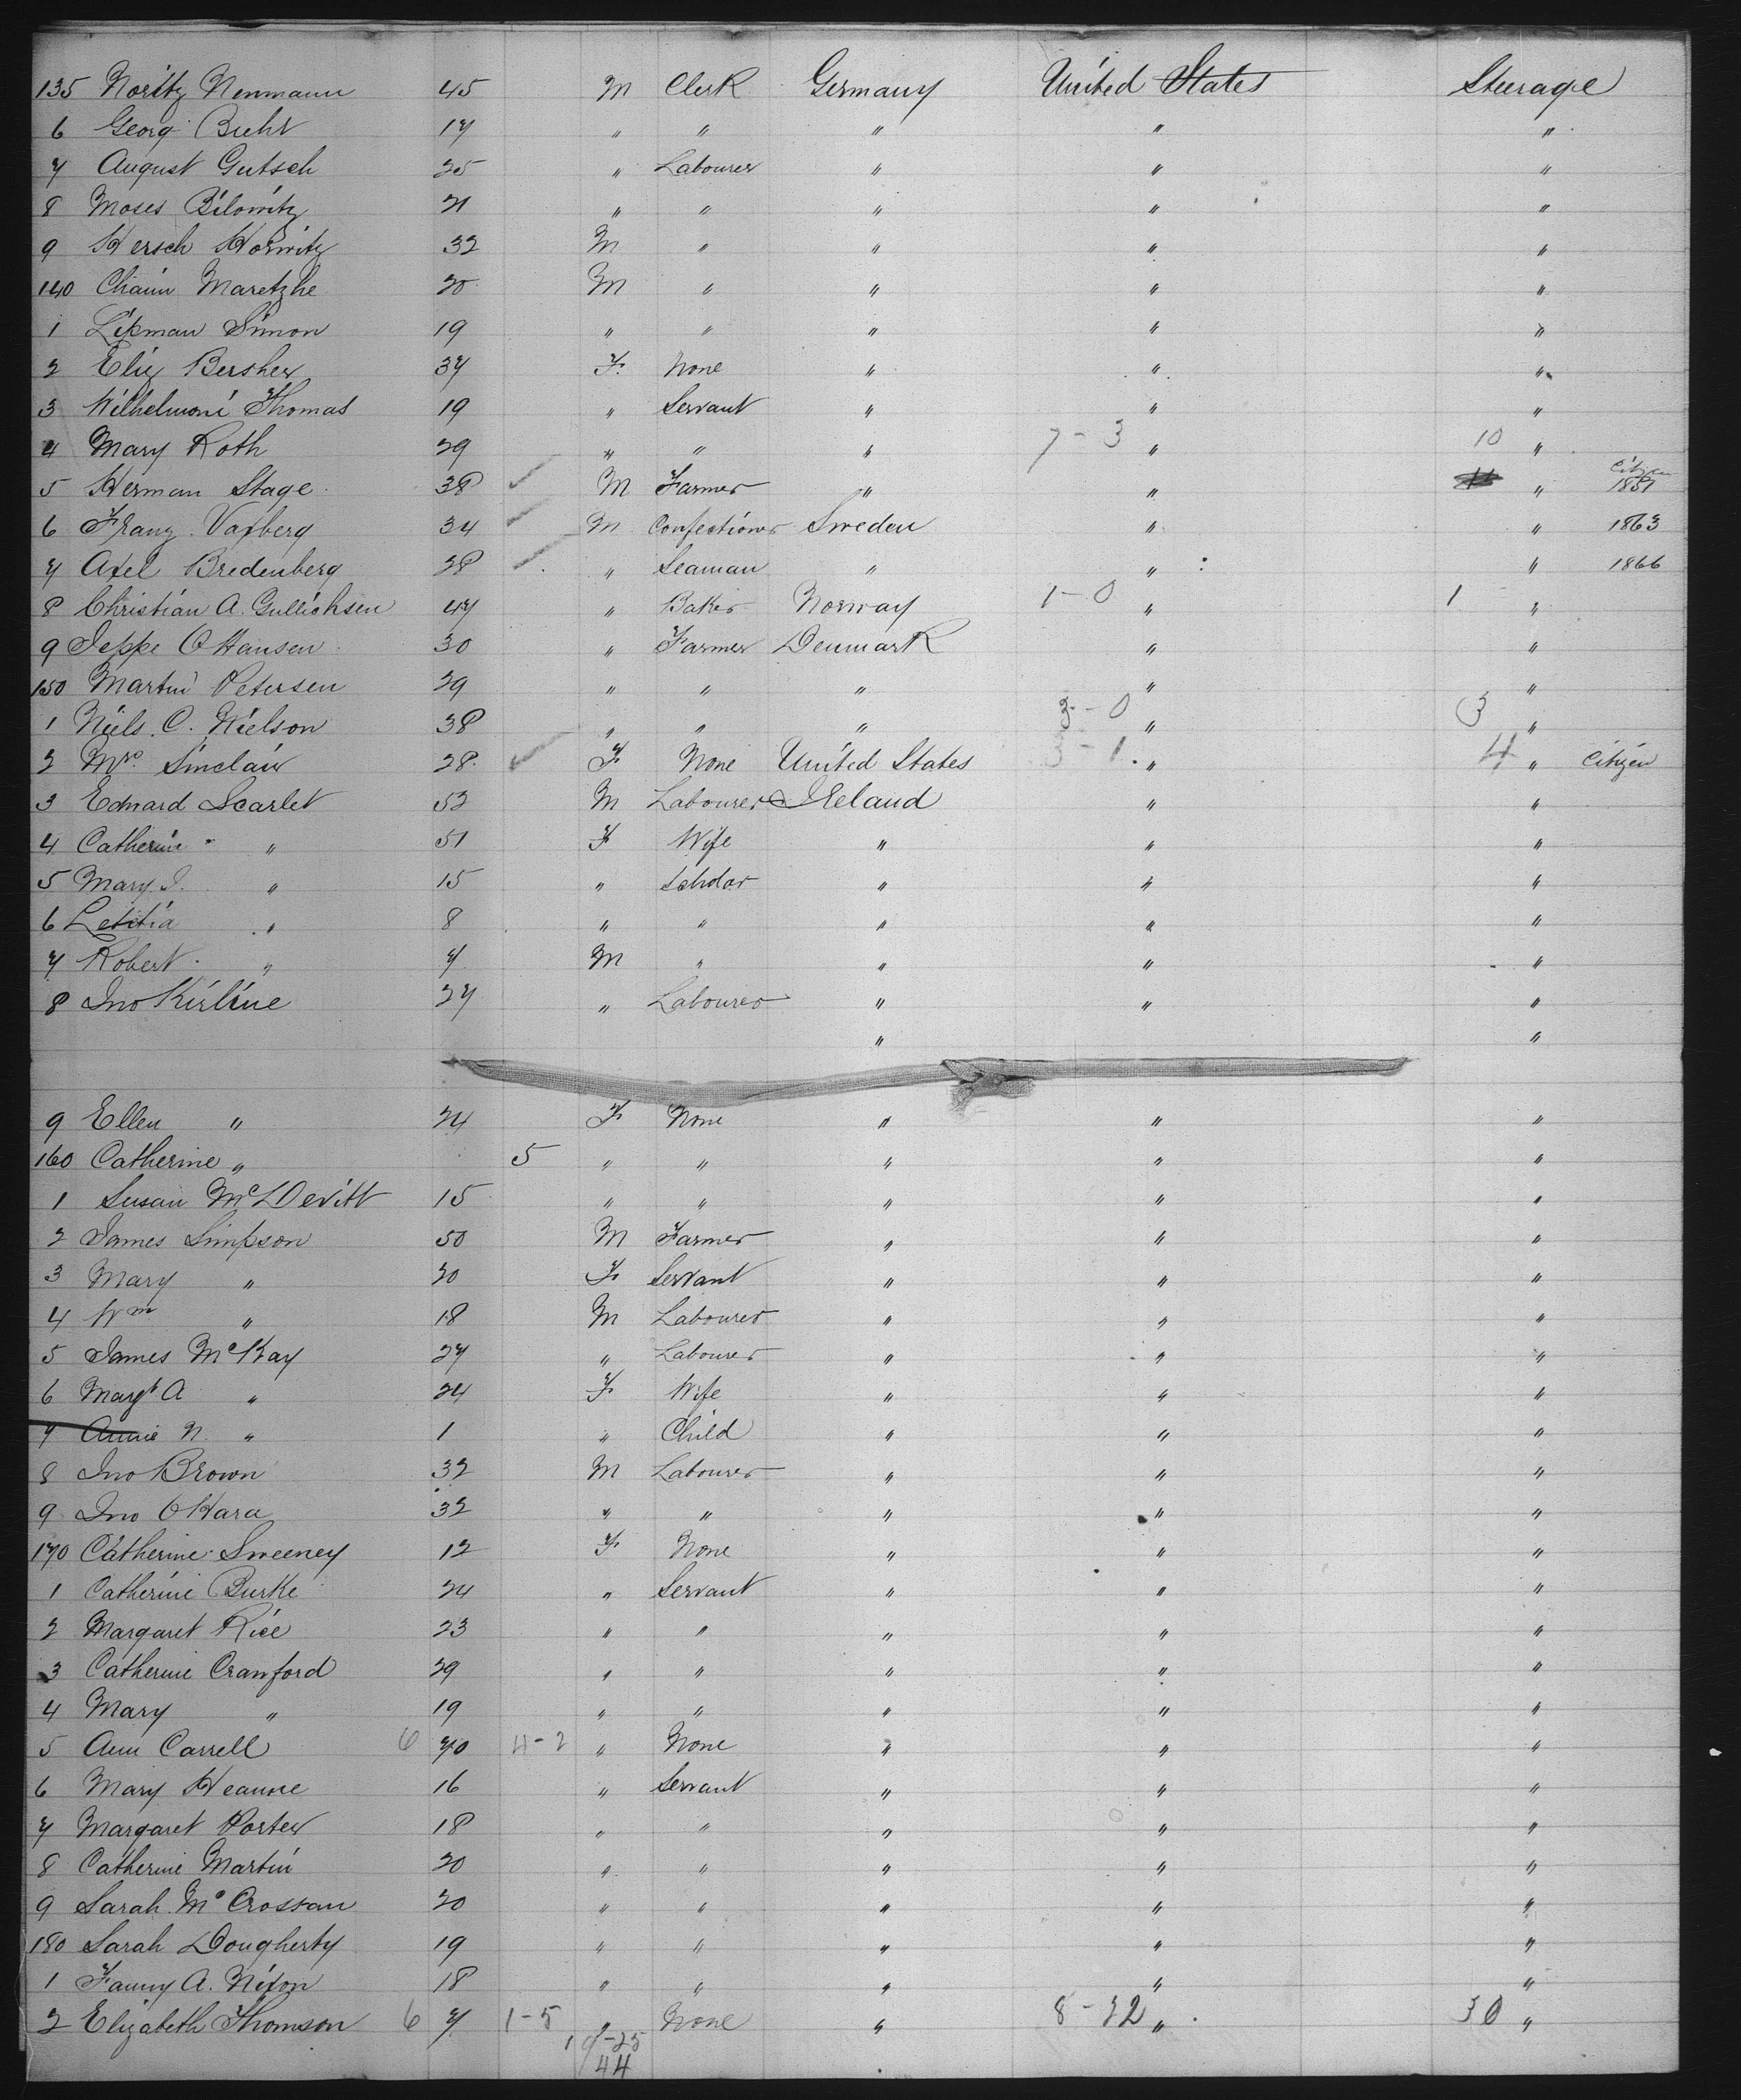 135 Noritz Nenmann 45 M Clerk Germany United States Steerage
6 Georg Buhr 17 " " " " "
7 August Gutsch 25 " Labourer " " "
8 Moses Bilowitz 21 " " " " "
9 Hersch Horwitz 32 M " " " "
140 Chaim Maretzhe 20 M " " " "
1 Lipman Simon 19 " " " " "
2 Eliz Bersher 37 F. None " " "
3 Wilhelmoni Thomas 19 " Servant " " "
4 Mary Roth 29 " " " 7-3 " 10 "
5 Herman Stage 38 M Farmer " " " Citizen 1851
6 Franz Vaxberg 34 M Confectioner Sweden " " 1863
7 Axel Bredenberg 28 " Seaman " " " 1866
8 Christian A. Gullichsen 47 " Baker Norway 1-0 " 1 "
9 Jeppe O Hansen 30 " Farmer Denmark " "
150 Martin Petersen 29 " " " " "
1 Niels C. Nielson 38 " " " 3-0 " 3 "
2 Mrs. Sinclair 28 F None United States 3-1 " 4 " Citizen
3 Edward Scarlet 52 M Labourer Ireland " "
4 Catherine " 51 F Wife " " "
5 Mary J. " 15 " Scholar " " "
6 Letitia " 8 " " " " "
7 Robert " 7 M " " " "
8 Jno Kirline 27 " Labourer " " "
" "
9 Ellen " 24 F None " " "
160 Catherine " 5 " " " " "
1 Susan McDevitt 15 " " " " "
2 James Simpson 50 M Farmer " " "
3 Mary " 20 F Servant " " "
4 Wm " 18 M Labourer " " "
5 James McKay 27 " Labourer " " "
6 Margt A " 24 F Wife " " "
7 Annie N. " 1 " Child " " "
8 Jno Brown 32 M Labourer " " "
9 Jno OHara 32 " " " " "
170 Catherine Sweeney 12 F None " " "
1 Catherine Burke 24 " Servant " " "
2 Margaret Rice 23 " " " " "
3 Catherine Crawford 29 " " " " "
4 Mary " 19 " " " " "
5 Ann Carrell 6 70 4-2 " None " " "
6 Mary Heanne 16 " Servant " " "
7 Margaret Porter 18 " " " " "
8 Catherine Martin 20 " " " " "
9 Sarah McCrossan 20 " " " " "
180 Sarah Dougherty 19 " " " " "
1 Fanny A. Nixon 18 " " " " "
2 Elizabeth Thomson 6 7 1-5 " None " 8-22 " 30 "
44